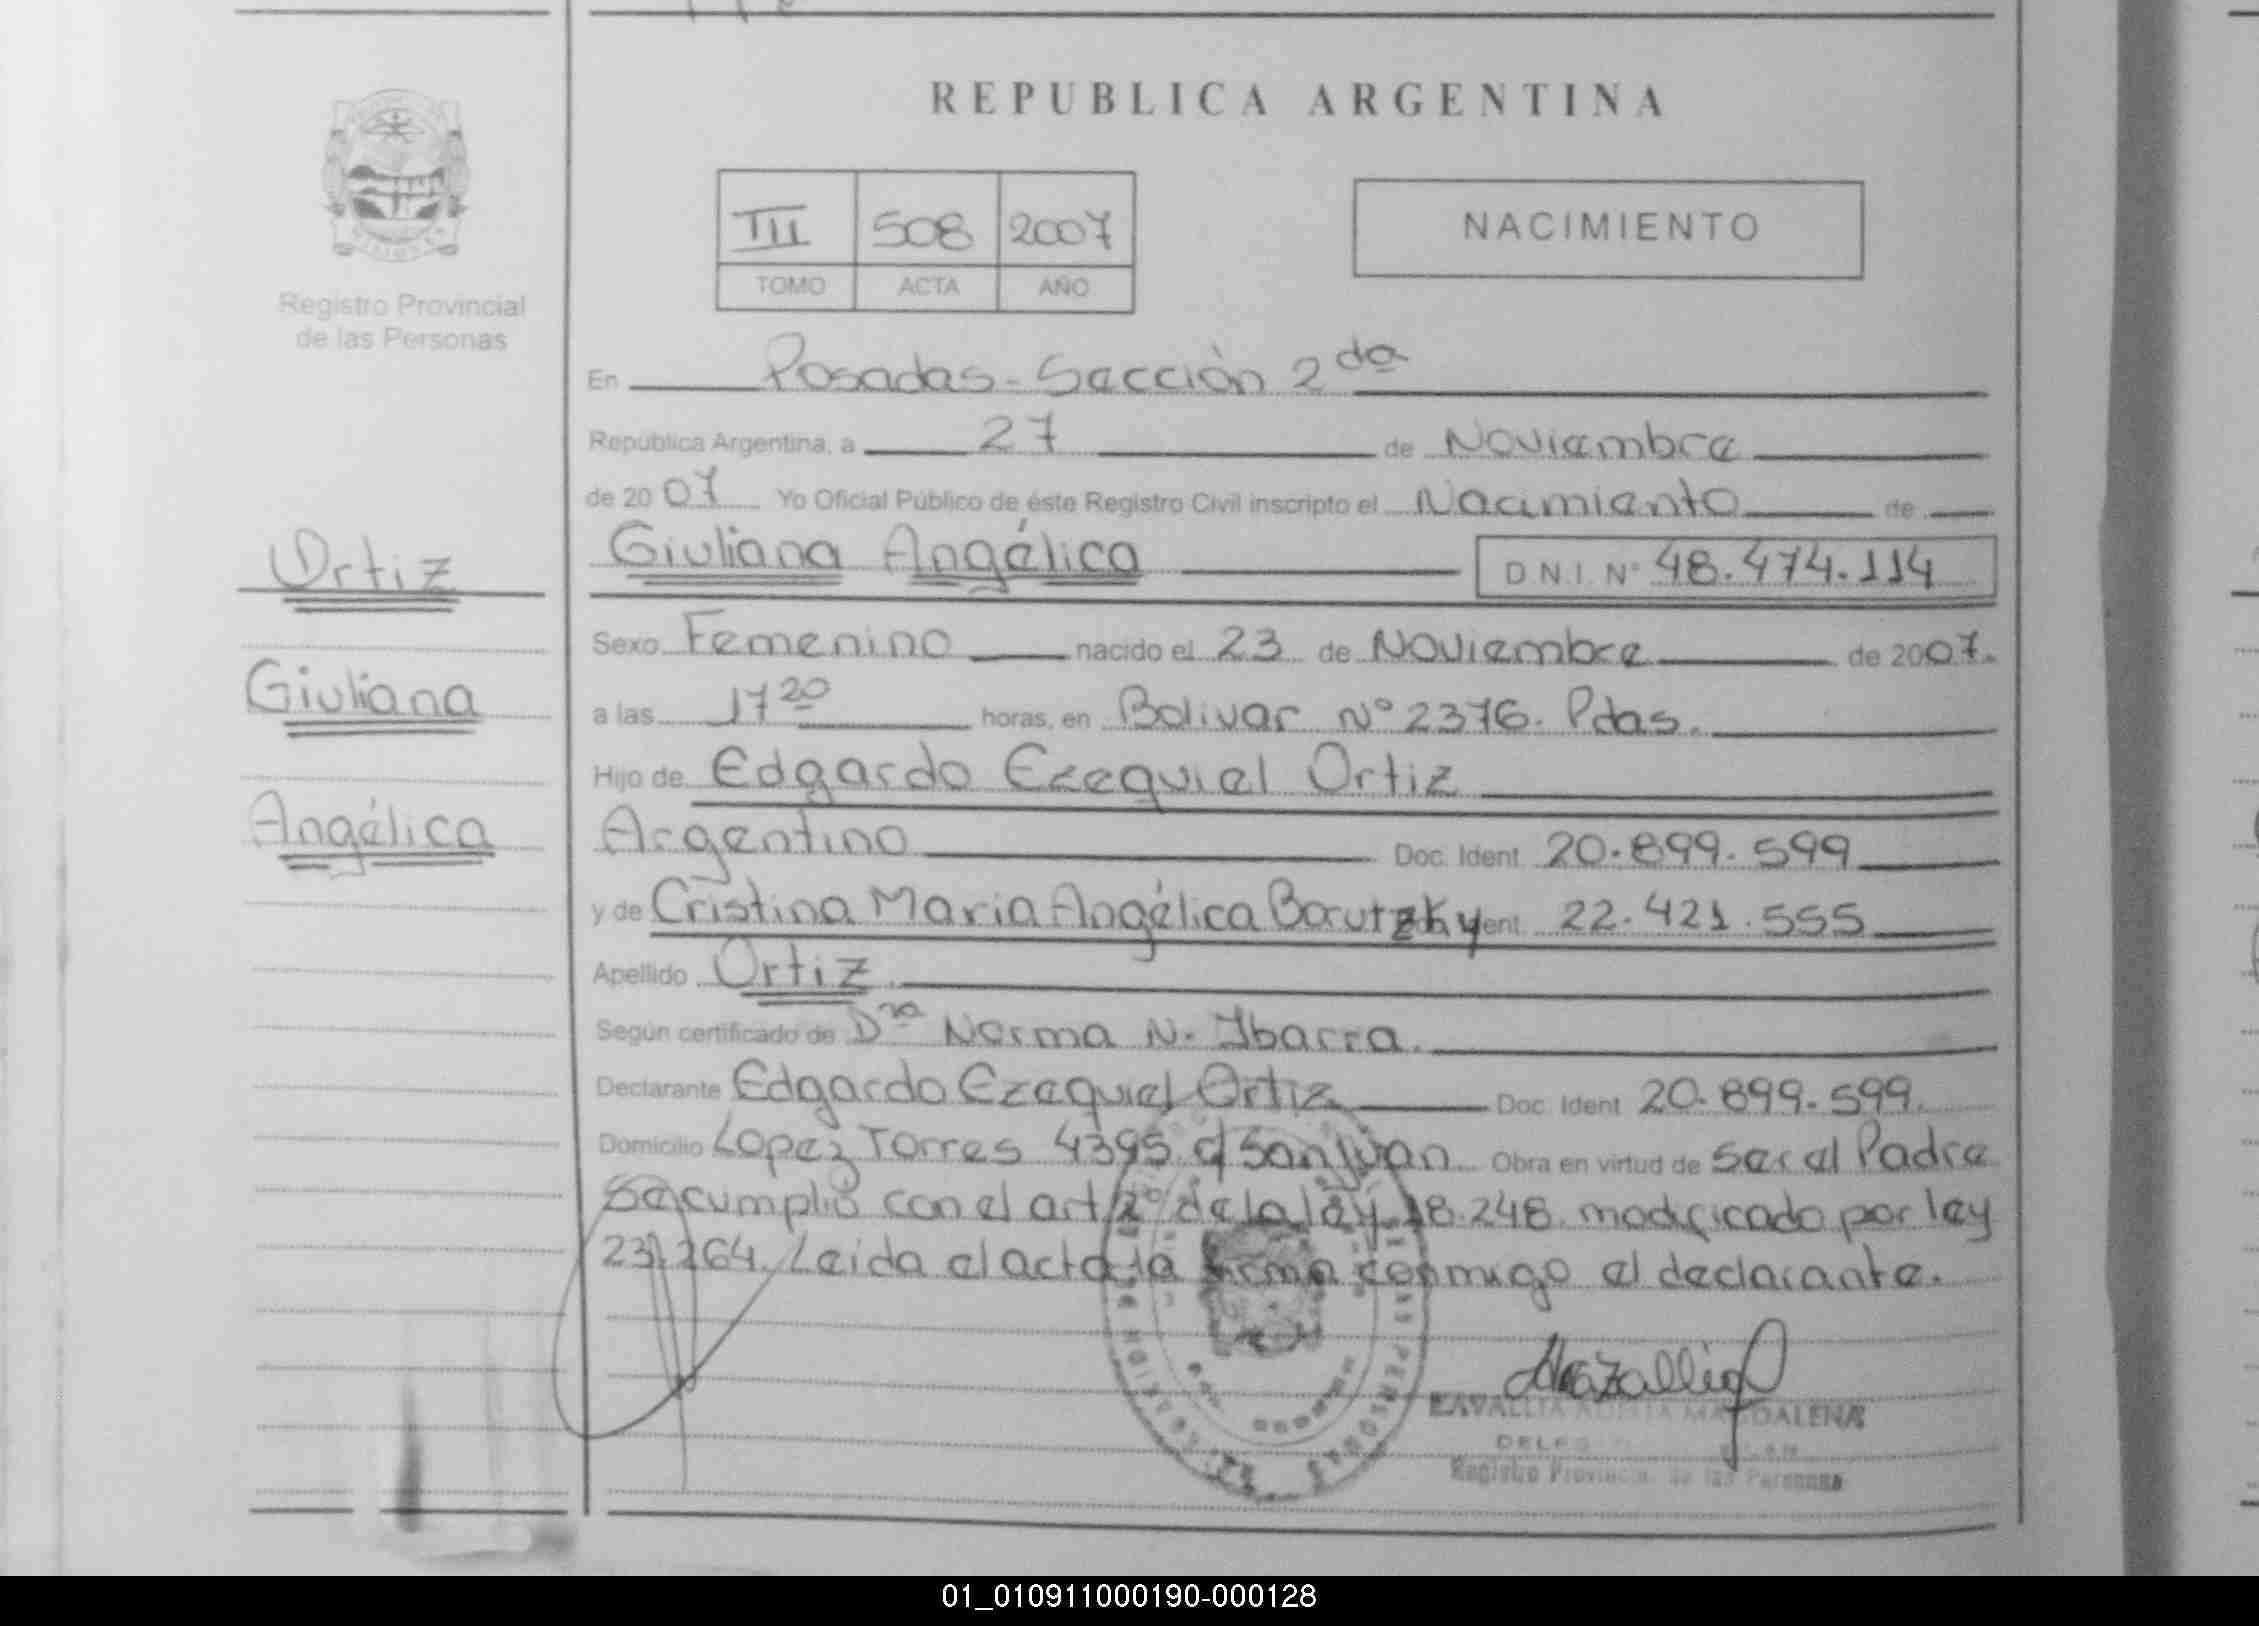 REPUBLICA ARGENTINA
III 508 2007
TOMO ACTA AÑO
NACIMIENTO
Registro Provincial
de las Personas
En Posadas - Sección 2da
República Argentina, a 27 de Noviembre
de 2007 Yo Oficial Público de éste Registro Civil inscripto el Nacimiento de
Giuliana Angélica D.N.I. Nº 48.474.114
Ortiz
Giuliana
Angélica
Sexo Femenino nacido el 23 de Noviembre de 2007.
a las 17 20 horas, en Bolivar Nº 2376. Pdas.
Hijo de Edgardo Ezequiel Ortiz
Argentino Doc. Ident 20.899.599
y de Cristina Maria Angélica Borutzky ent 22.421.555
Apellido Ortiz
Según certificado de Dra Norma N. Ibarra.
Declarante Edgardo Ezequiel Ortiz Doc. Ident 20.899.599.
Domicilio Lopez Torres 4395 c/ San Juan Obra en virtud de ser el Padre
Se cumplió con el art 2º de la ley 18.248 modificado por ley
23.264. Leida el acta la firma conmigo el declarante.
MAGDALENA
Registro Provincial de las Personas
01_010911000190-000128